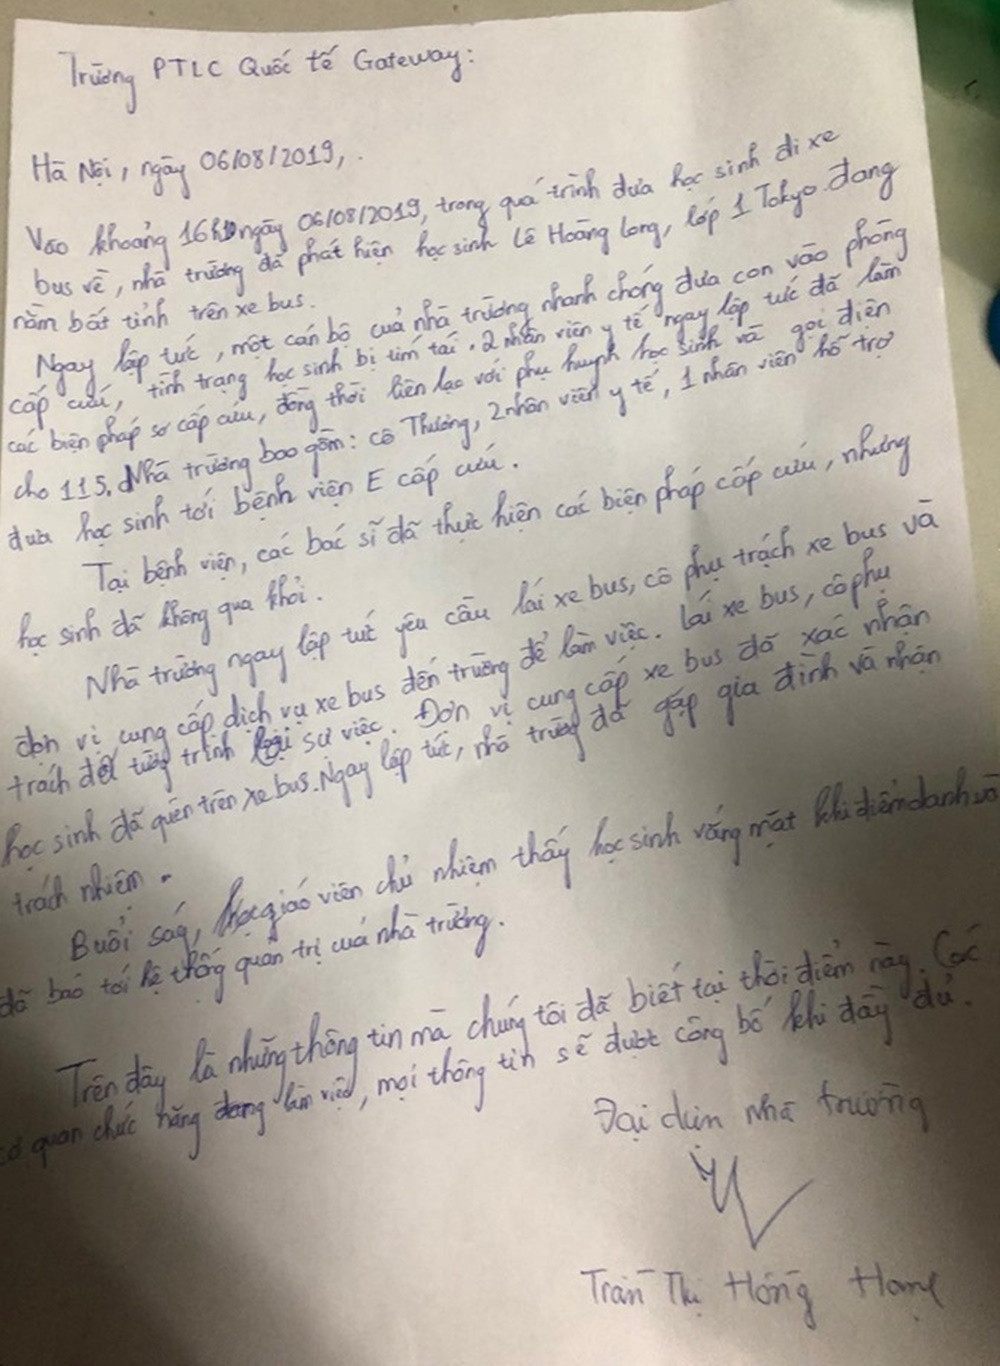 Trường PTLC Quốc tế Gateway:
Hà Nội, ngày 06/08/2019,.
Vào khoảng 16h10 ngày 06/08/2019, trong quá trình đưa học sinh đi xe
bus về, nhà trường đã phát hiện học sinh Lê Hoàng Long, lớp 1 Tokyo đang
nằm bất tỉnh trên xe bus.
Ngay lập tức, một cán bộ của nhà trường nhanh chóng đưa con vào phòng
cấp cứu, tình trạng học sinh bị tím tái. 2 nhân viên y tế ngay lập tức đã làm
các biện pháp sơ cấp cứu, đồng thời liên lạc với phụ huynh học sinh và gọi điện
cho 115. Nhà trường bao gồm: cô Thương, 2 nhân viên y tế, 1 nhân viên hỗ trợ
đưa học sinh tới bệnh viện E cấp cứu.
Tại bệnh viện, các bác sĩ đã thực hiện các biện pháp cấp cứu, nhưng
học sinh đã không qua khỏi.
Nhà trường ngay lập tức yêu cầu lái xe bus, cô phụ trách xe bus và
đơn vị cung cấp dịch vụ xe bus đến trường để làm việc. Lái xe bus, cô phụ
trách để tường trình lại sự việc. Đơn vị cung cấp xe bus đã xác nhận
học sinh đã quên trên xe bus. Ngay lập tức, nhà trường đã gặp gia đình và nhận
trách nhiệm.
Buổi ság, giáo viên chủ nhiệm thấy học sinh vắng mặt khi điểm danh và
đã báo tới hệ thống quản trị của nhà trường.
Trên đây là những thông tin mà chúng tôi đã biết tại thời điểm này. Các
cơ quan chức năng đang làm việc, mọi thông tin sẽ được công bố khi đầy đủ.
Đại diện nhà trường
Trần Thị Hồng Hạnh